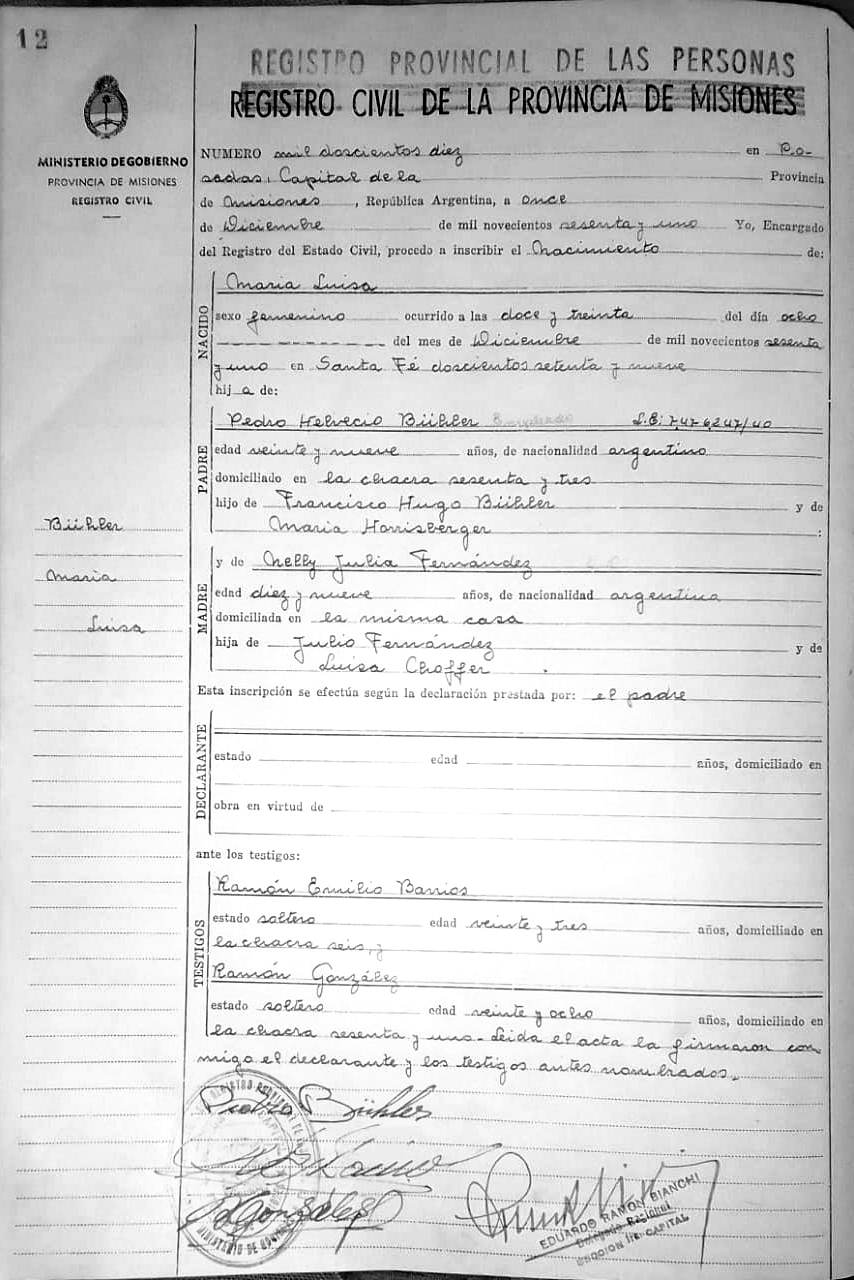 12
REGISTRO PROVINCIAL DE LAS PERSONAS
REGISTRO CIVIL DE LA PROVINCIA DE MISIONES
MINISTERIO DE GOBIERNO
PROVINCIA DE MISIONES
REGISTRO CIVIL
NUMERO mil doscientos diez en Po-
sadas, Capital de la Provincia
de Misiones, República Argentina, a once
de Diciembre de mil novecientos sesenta y uno Yo, Encargado
del Registro del Estado Civil, procedo a inscribir el Nacimiento de:
NACIDO
Maria Luisa
sexo femenino ocurrido a las doce y treinta del día ocho
del mes de Diciembre de mil novecientos sesenta
y uno en Santa Fé doscientos setenta y nueve
hij a de:
PADRE
Pedro Helvecio Bühler Empleado L.E: 7476247/40
edad veinte y nueve años, de nacionalidad argentino
domiciliado en la chacra sesenta y tres
hijo de Francisco Hugo Bühler y de
Maria Harrisberger :
Bühler
Maria
Luisa
MADRE
y de Nelly Julia Fernández
edad diez y nueve años, de nacionalidad argentina
domiciliada en la misma casa
hija de Julio Fernández y de
Luisa Choffer .
Esta inscripción se efectúa según la declaración prestada por: el padre
DECLARANTE
estado edad años, domiciliado en
obra en virtud de
ante los testigos:
TESTIGOS
Ramón Emilio Barrios
estado soltero edad veinte y tres años, domiciliado en
la chacra seis, y
Ramón González
estado soltero edad veinte y ocho años, domiciliado en
la chacra sesenta y uno - Leida el acta la firmaron con-
migo el declarante y los testigos antes nombrados.-
Pedro Bühler
González
EDUARDO RAMON BIANCHI
SECCION CAPITAL